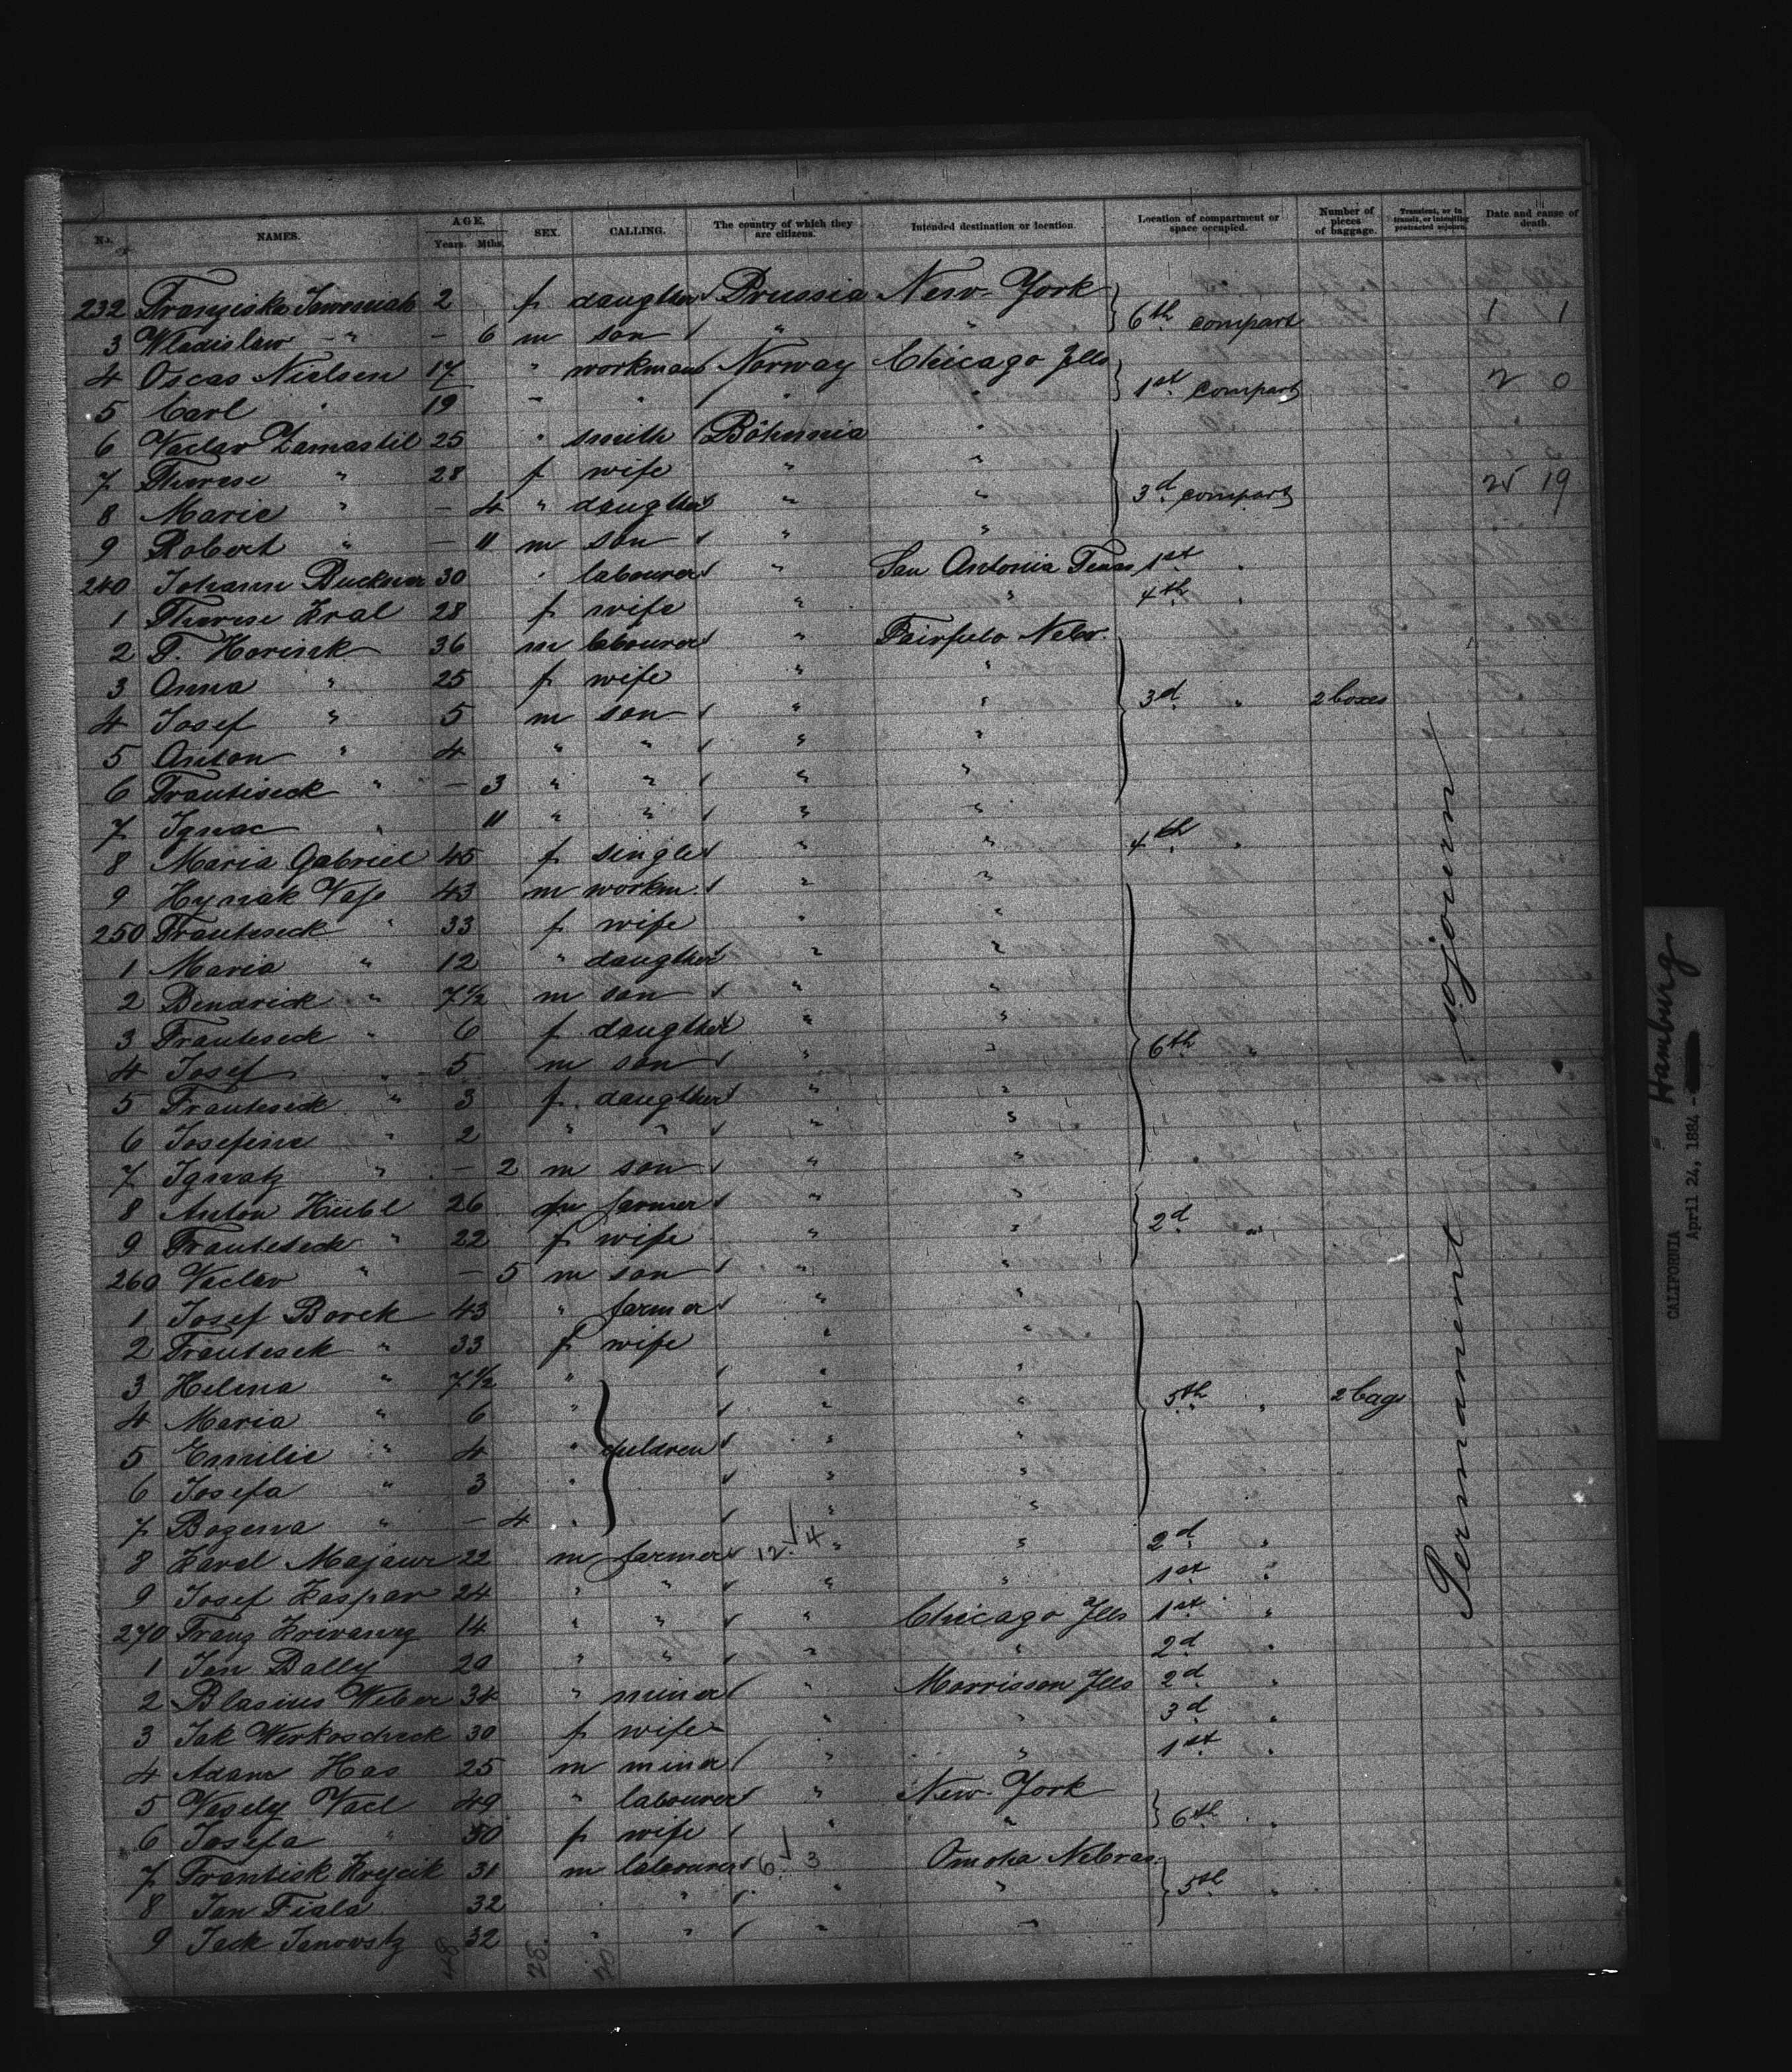 No. NAMES. AGE. Years. Mths. SEX. CALLING. The country of which they are citizens. Intended destination or location. Location of compartment or space occupied. Number of pieces of baggage. Transient, or in transit, or intending protracted sojourn. Date and cause of death.
232 Franziska 2 f daughter Prussia New-York
3 Wladislaw " - 6 m son " " 6th compart 1 1
4 Oscar Nielsen 17 " workman Norway Chicago Ills
5 Carl " 19 " " " " 1st compart 2 0
6 Vaclav Zamastil 25 " smith Böhemia "
7 Therese " 28 f wife " "
8 Marie " - 4 " daugther " " 3d compart 25 19
9 Robert " - 11 m son " "
240 Johann 30 " labourer " San Antonia Texas 1st "
1 Therese Kral 28 f wife " " 4th "
2 F. Horinek 36 m labourer " Nebr.
3 Anna " 25 f wife " "
4 Josef " 5 m son " " 3d " 2 boxes
5 Anton " 4 " " " "
6 Frautiseck " - 3 " " " "
7 Ignac " 11 " " " "
8 Maria Gabriel 45 f single " " 4th "
9 Hynak 43 m workm. " "
250 Frauteseck " 33 f wife " "
1 Maria " 12 " daugther " "
2 Bendrick " 7½ m son " "
3 Frauteseck " 6 f daugther " "
4 Josef " 5 m son " " 6th "
5 Frauteseck " 3 f daugther " "
6 Josefine " 2 " " " "
7 Ignatz " - 2 m son " "
8 Anton Hübl 26 m farmer " "
9 Frauteseck " 22 f wife " " 2d "
260 Vaclav " - 5 m son " "
1 Josef Borek 43 " farmer " "
2 Frautesek " 33 f wife " "
3 Helena " 7½ " " "
4 Maria " 6 " " " 5th " 2 bags
5 Emilie " 4 " children " "
6 Josefa " 3 " " "
7 Bozena " - 4 " " "
8 Karel 22 m farmer 12 4 " " 2d "
9 Josef Kaspar 24 " " " " 1st "
270 Franz 14 " " " Chicago Ills 1st "
1 Jan Bally 20 " " " " 2d "
2 Blasius Weber 34 " miner " Morrisson Ills 2d "
3 Jak Werkoscheck 30 f wife " " 3d "
4 Adam Has 25 m miner " " 1st "
5 Vesely Vacl 49 " labourer " New-York
6 Josefa " 50 f wife " " 6th "
7 Frantisk Krejcik 31 m labourer 6 3 Omaha Nebras.
8 Jan Fiala 32 " " " " 5th "
9 Jack 32 " " " "
48 28 20
Permanent sojourn
CALIFORNIA Hamburg
April 24, 1884 -